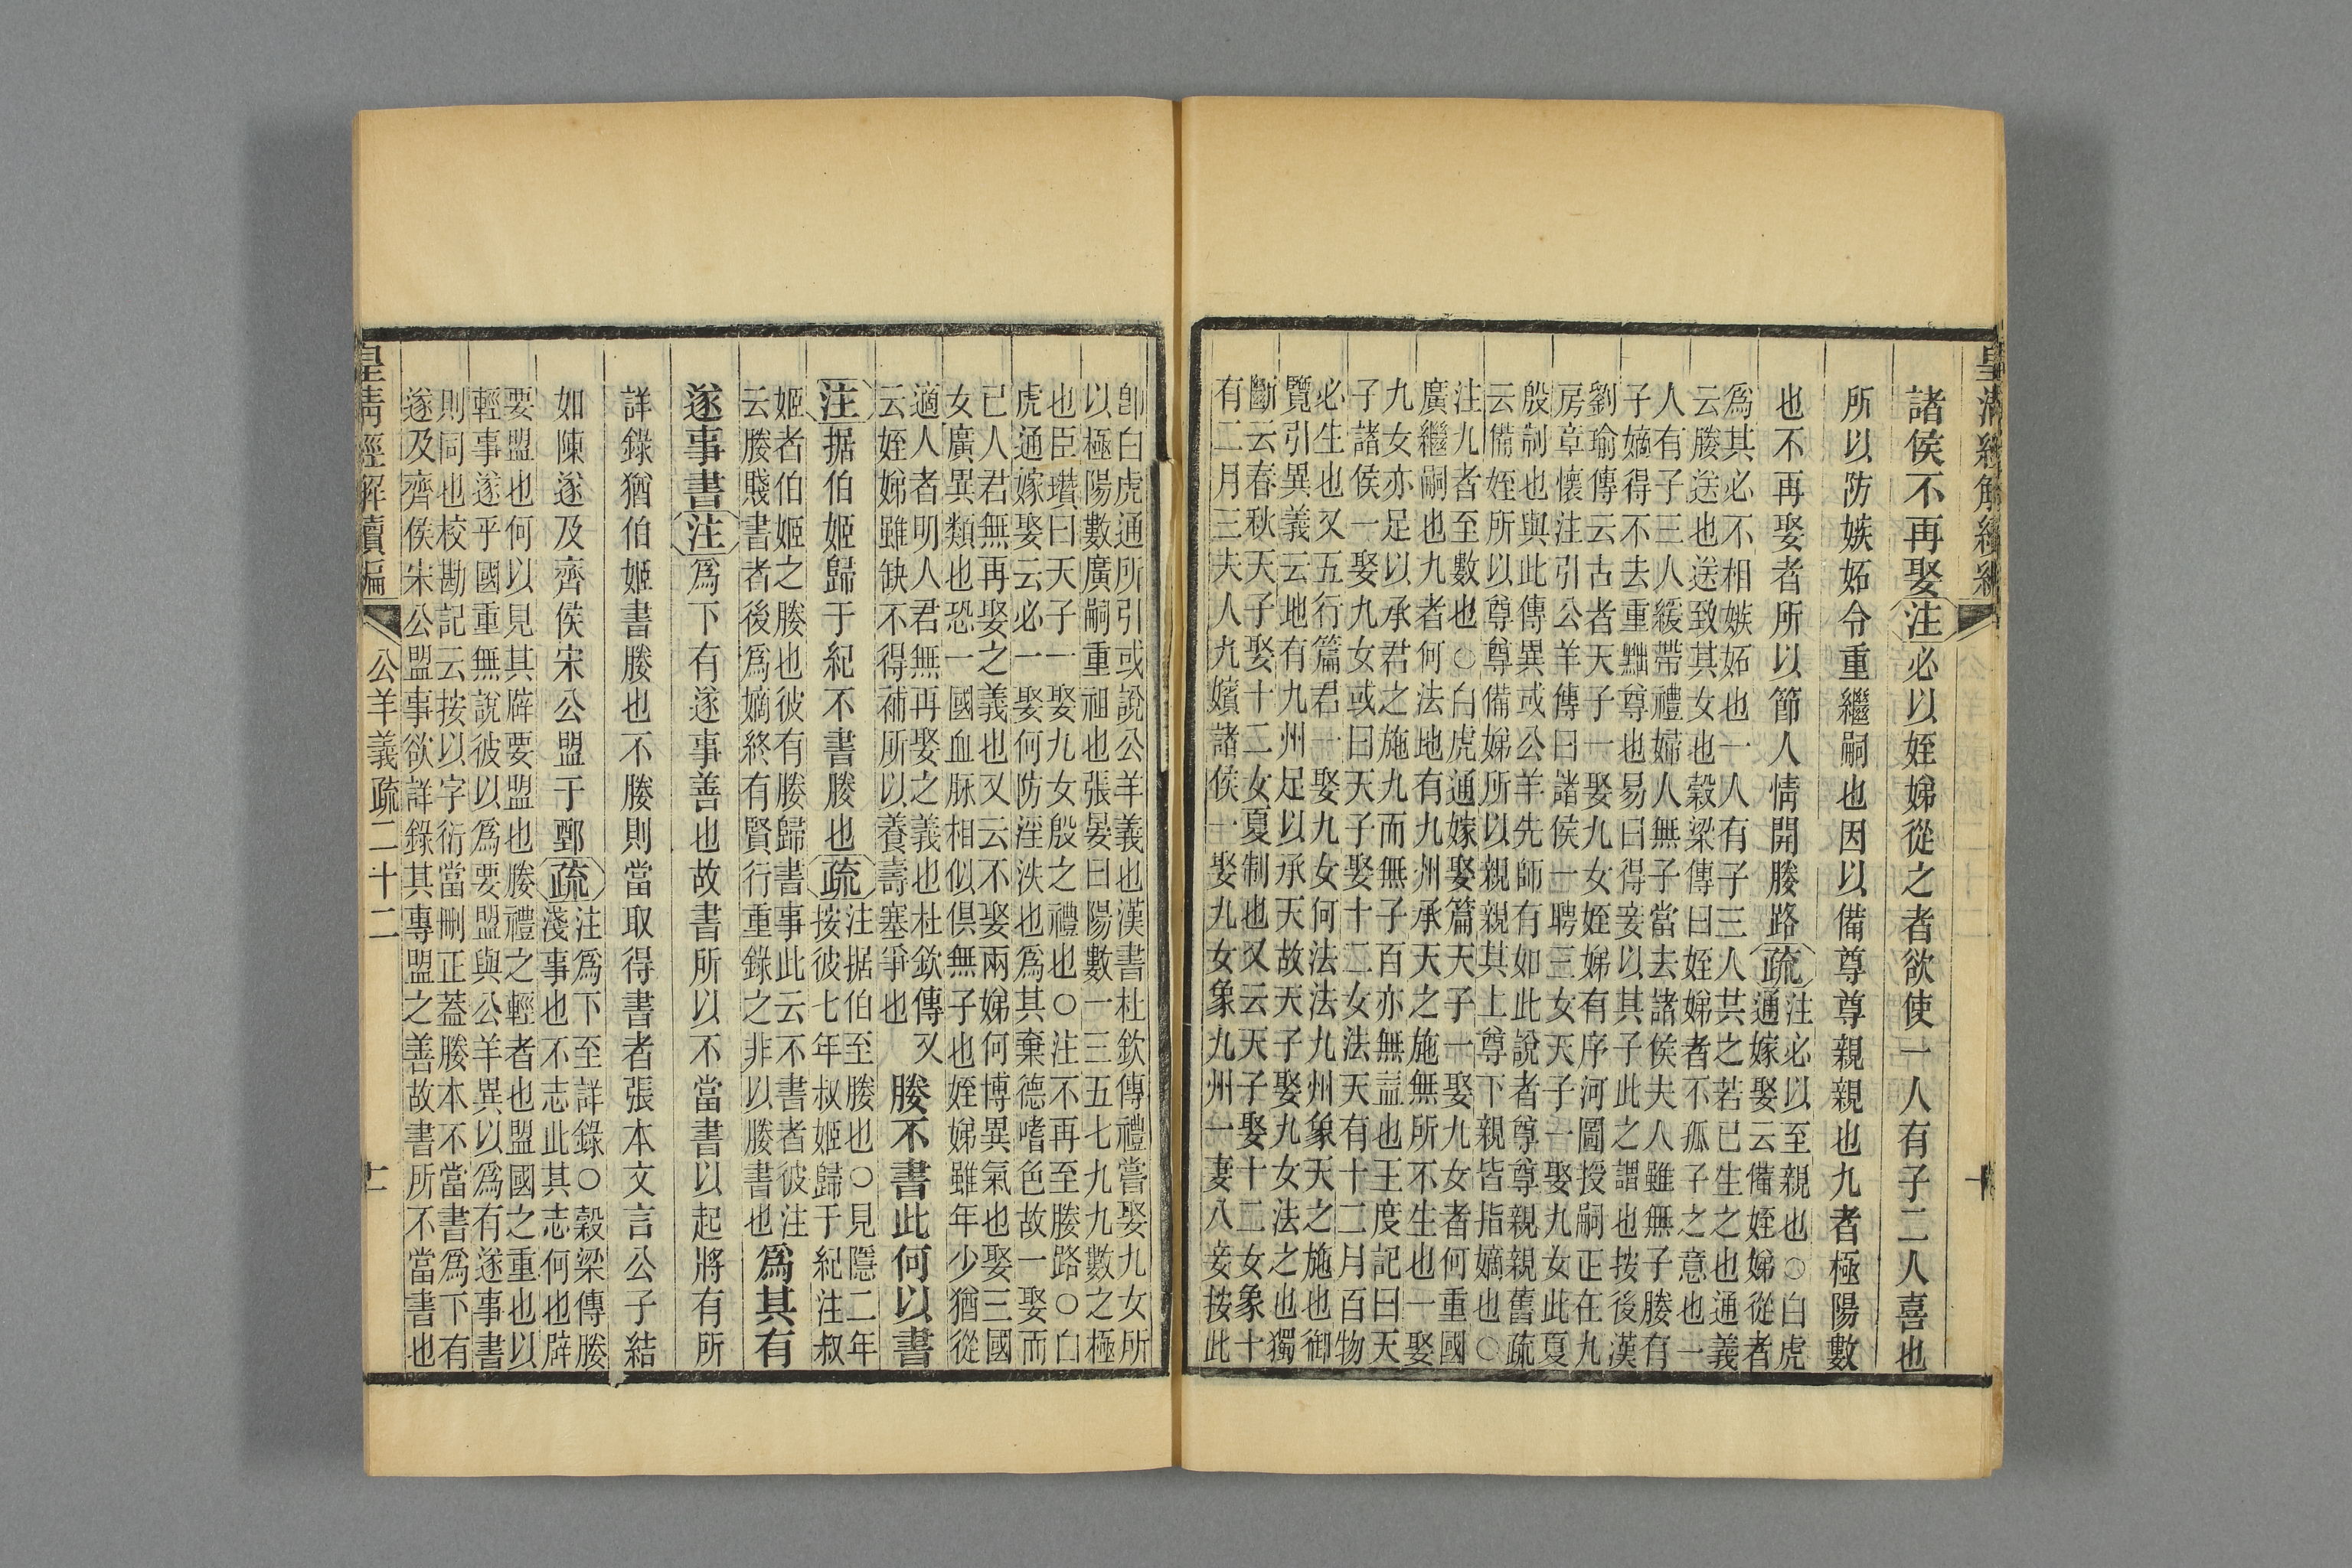 皇清經解續編 十
諸侯不再娶注必以姪娣從之者欲使一人有子二人喜也
所以防嫉妬令重繼嗣也因以備尊尊親親也九者極陽數
也不再娶者所以節人情開媵路疏
注必以至親也○白虎
通嫁娶云備姪娣從者
爲其必不相嫉妬也一人有子三人共之若已生之也通義
云媵送也送致其女也穀梁傳曰姪娣者不孤子之意也一
人有子三人緩帶禮婦人無子當去諸侯夫人雖無子媵有
子嫡得不去重黜尊也易曰得妾以其子此之謂也按後漢
劉瑜傳云古者天子一娶九女姪娣有序河圖授嗣正在九
房章懷注引公羊傳曰諸侯一聘三女天子一娶九女此夏
殷制也與此傳異或公羊先師有如此說者尊尊親親舊疏
云備姪所以尊尊備娣所以親親其上尊下親皆指嫡也○
注九者至數也○白虎通嫁娶篇天子一娶九女者何重國
廣繼嗣也九者何法地有九州承天之施無所不生也一娶
九女亦足以承君之施九而無子百亦無益也王度記曰天
子諸侯一娶九女或曰天子娶十二女法天有十二月百物
必生也又五行篇君一娶九女何法法九州象天之施也御
覽引異義云地有九州足以承天故天子娶九女法之也獨
斷云春秋天子娶十二女夏制也又云天子娶十二女象十
有二月三夫人九嬪諸侯一娶九女象九州一妻八妾按此
卽白虎通所引或說公羊義也漢書杜欽傳禮嘗娶九女所
以極陽數廣嗣重祖也張晏曰陽數一三五七九九數之極
也臣瓚曰天子一娶九女殷之禮也○注不再至媵路○白
虎通嫁娶云必一娶何防淫泆也爲其棄德嗜色故一娶而
已人君無再娶之義也又云不娶兩娣何博異氣也娶三國
女廣異類也恐一國血脉相似俱無子也姪娣雖年少猶從
適人者明人君無再娶之義也杜欽傳又
云姪娣雖缺不得補所以養壽塞爭也
媵不書此何以書
注据伯姬歸于紀不書媵也疏
注据伯至媵也○見隱二年
按彼七年叔姬歸于紀注叔
姬者伯姬之媵也彼有媵歸書事此云不書者彼注
云媵賤書者後爲嫡終有賢行重錄之非以媵書也
爲其有
遂事書注爲下有遂事善也故書所以不當書以起將有所
詳錄猶伯姬書媵也不媵則當取得書者張本文言公子結
如陳遂及齊侯宋公盟于鄄疏
注爲下至詳錄○穀梁傳媵
淺事也不志此其志何也辟
要盟也何以見其辟要盟也媵禮之輕者也盟國之重也以
輕事遂乎國重無說彼以爲要盟與公羊異以爲有遂事書
則同也校勘記云按以字衍當刪正蓋媵本不當書爲下有
遂及齊侯宋公盟事欲詳錄其專盟之善故書所不當書也
皇清經解續編 公羊義疏二十二 十一